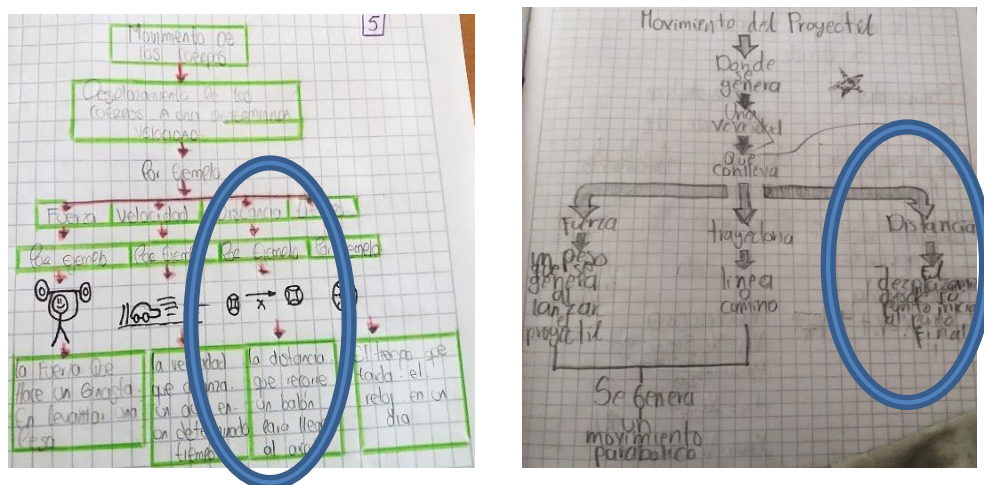 5
Movimiento De
los cuerpos
Desplazamiento De los
cuerpos A una Determinada
VELOCIDAD
Por Ejemplo
Fuerza Velocidad Distancia
Por Ejemplo Por Ejem Por Ejemplo Por Ejemplo
x
la Fuerza Que
Hace un
En levantar una
Peso
la velocidad
que alcanza
un auto en
un determinado
tiempo
la distancia
que recorre
un balón
para llegar
al arco
El tiempo que
tarda el
reloj en un
dia
Movimiento del Proyectil
Donde
se
genera
Una
velocidad
que
conlleva
Fuerza
un peso
que se
genera
al
lanzar
el
proyectil
trayectoria
linea
o
camino
Distancia
El
desde
punto
al punto
final
Se Genera
un
movimiento
parabolico